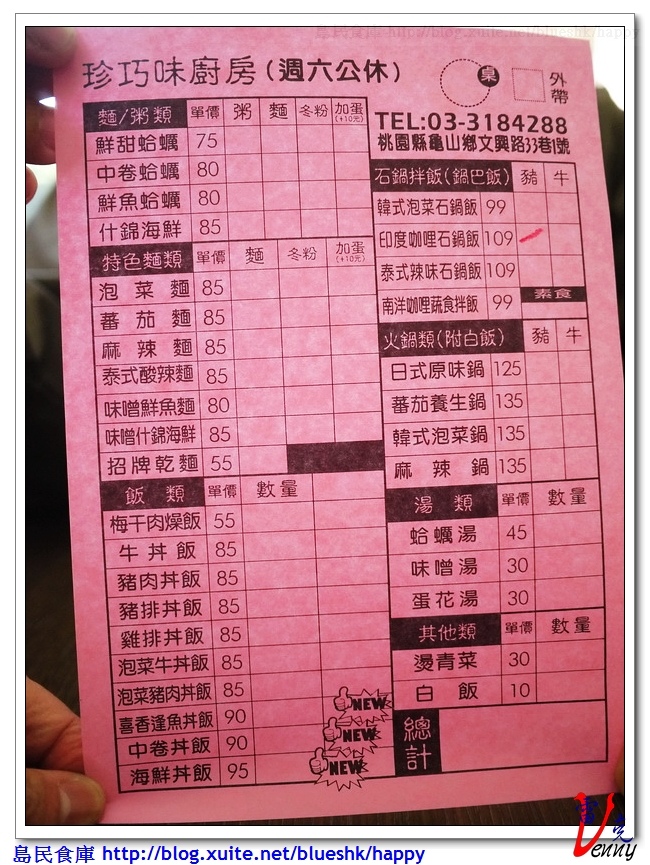 島民食庫 http://blog.xuite.net/blueshk/happy
珍巧味廚房(週六公休)
桌
外帶
TEL:03-3184288
桃園縣龜山鄉文興路33巷1號
麵/粥類 單價 粥 麵 冬粉 加蛋(+10元)
鮮甜蛤蠣 75
中卷蛤蠣 80
鮮魚蛤蠣 80
什錦海鮮 85
特色麵類 單價 麵 冬粉 加蛋(+10元)
泡菜麵 85
蕃茄麵 85
麻辣麵 85
泰式酸辣麵 85
味噌鮮魚麵 80
味噌什錦海鮮 85
招牌乾麵 55
飯類 單價 數量
梅干肉燥飯 55
牛丼飯 85
豬肉丼飯 85
豬排丼飯 85
雞排丼飯 85
泡菜牛丼飯 85
泡菜豬肉丼飯 85
喜香逢魚丼飯 90 NEW
中卷丼飯 90 NEW
海鮮丼飯 95 NEW
石鍋拌飯(鍋巴飯) 豬 牛
韓式泡菜石鍋飯 99
印度咖哩石鍋飯 109
泰式辣味石鍋飯 109
南洋咖哩蔬食拌飯 99 素食
火鍋類(附白飯) 豬 牛
日式原味鍋 125
蕃茄養生鍋 135
韓式泡菜鍋 135
麻辣鍋 135
湯類 單價 數量
蛤蠣湯 45
味噌湯 30
蛋花湯 30
其他類 單價 數量
燙青菜 30
白飯 10
總計
Venny
島民食庫 http://blog.xuite.net/blueshk/happy